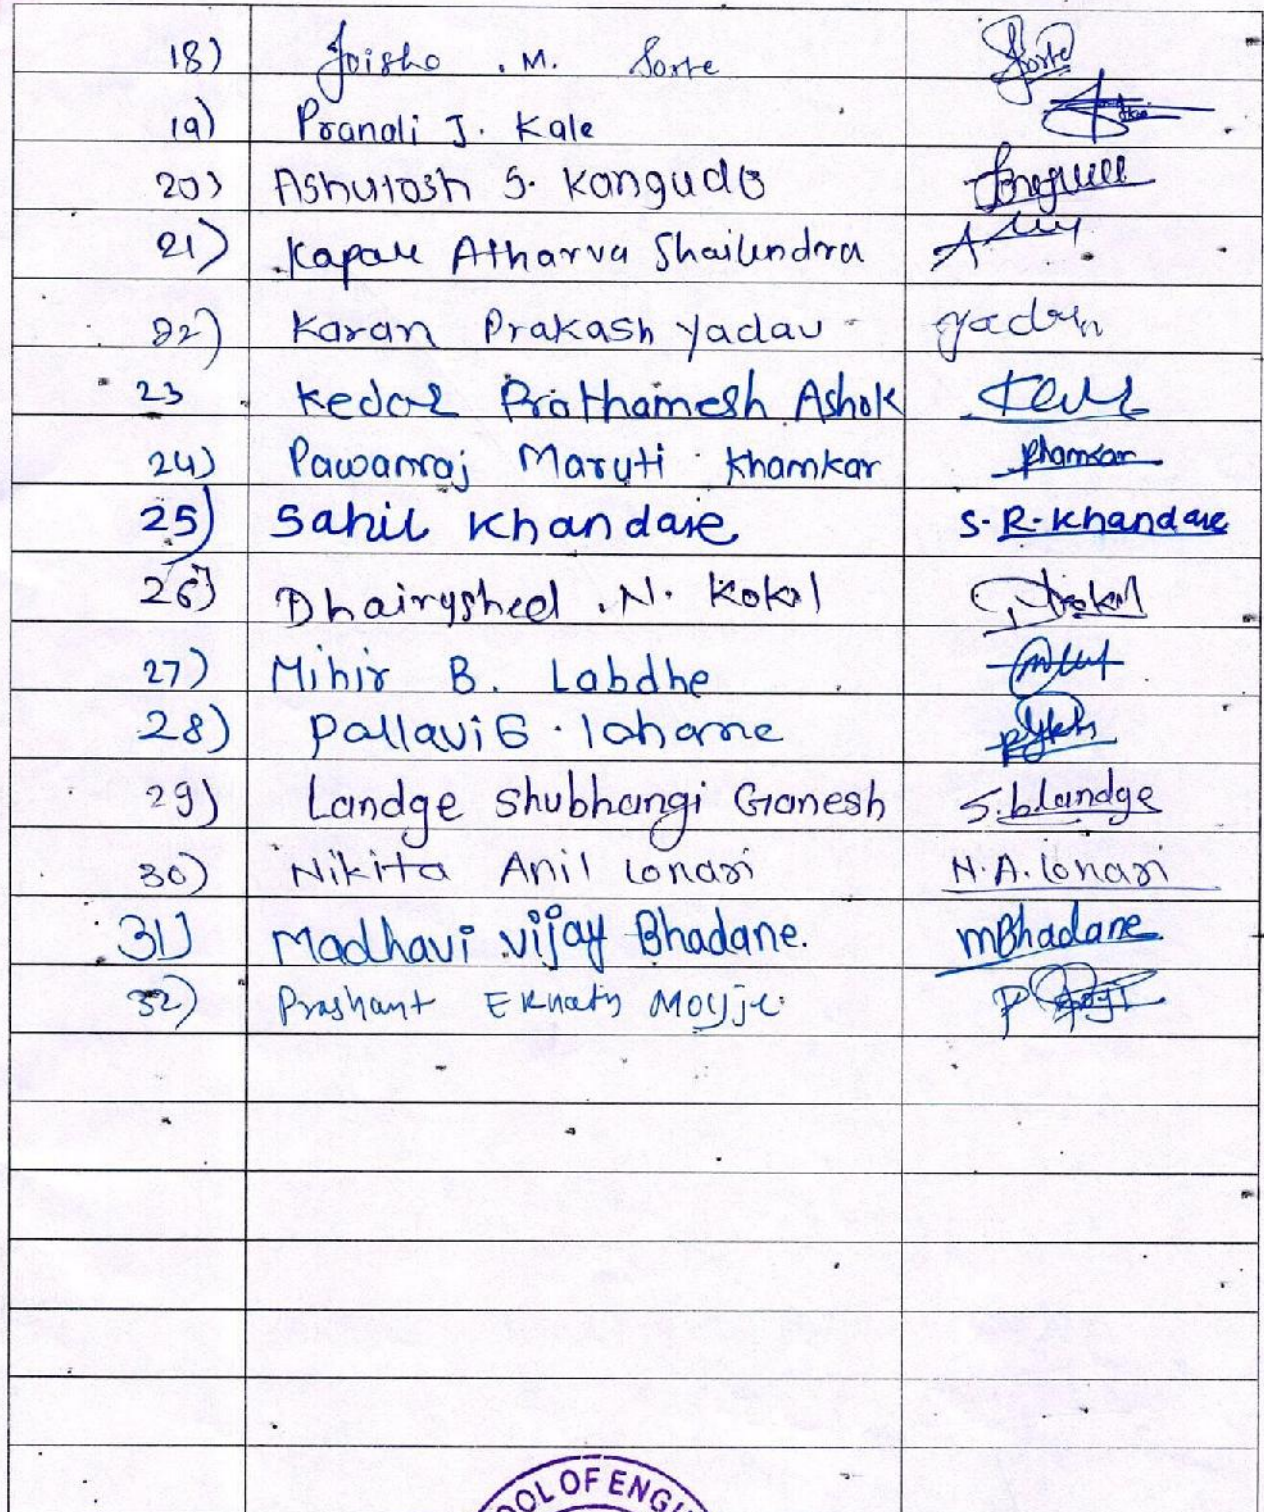 18) Joisho . M. Sorte Sorte
19) Pranali J. Kale
20) Ashutosh S. Kangude
21) Kapare Atharva Shailendra
22) Karan Prakash Yadav Yadav
23 Kedar Prathamesh Ashok
24) Pawanraj Maruti Khamkar Khamkar
25) Sahil Khandare S. R. Khandare
26) Dhairyshed . N. Kokal
27) Mihir B. Labdhe
28) Pallavi G. lahane
29) Landge Shubhangi Ganesh S.b.landge
30) Nikita Anil lonari N. A. lonari
31) Madhavi vijay Bhadane. mBhadane
32) Prashant Eknath
OOL OF ENGI